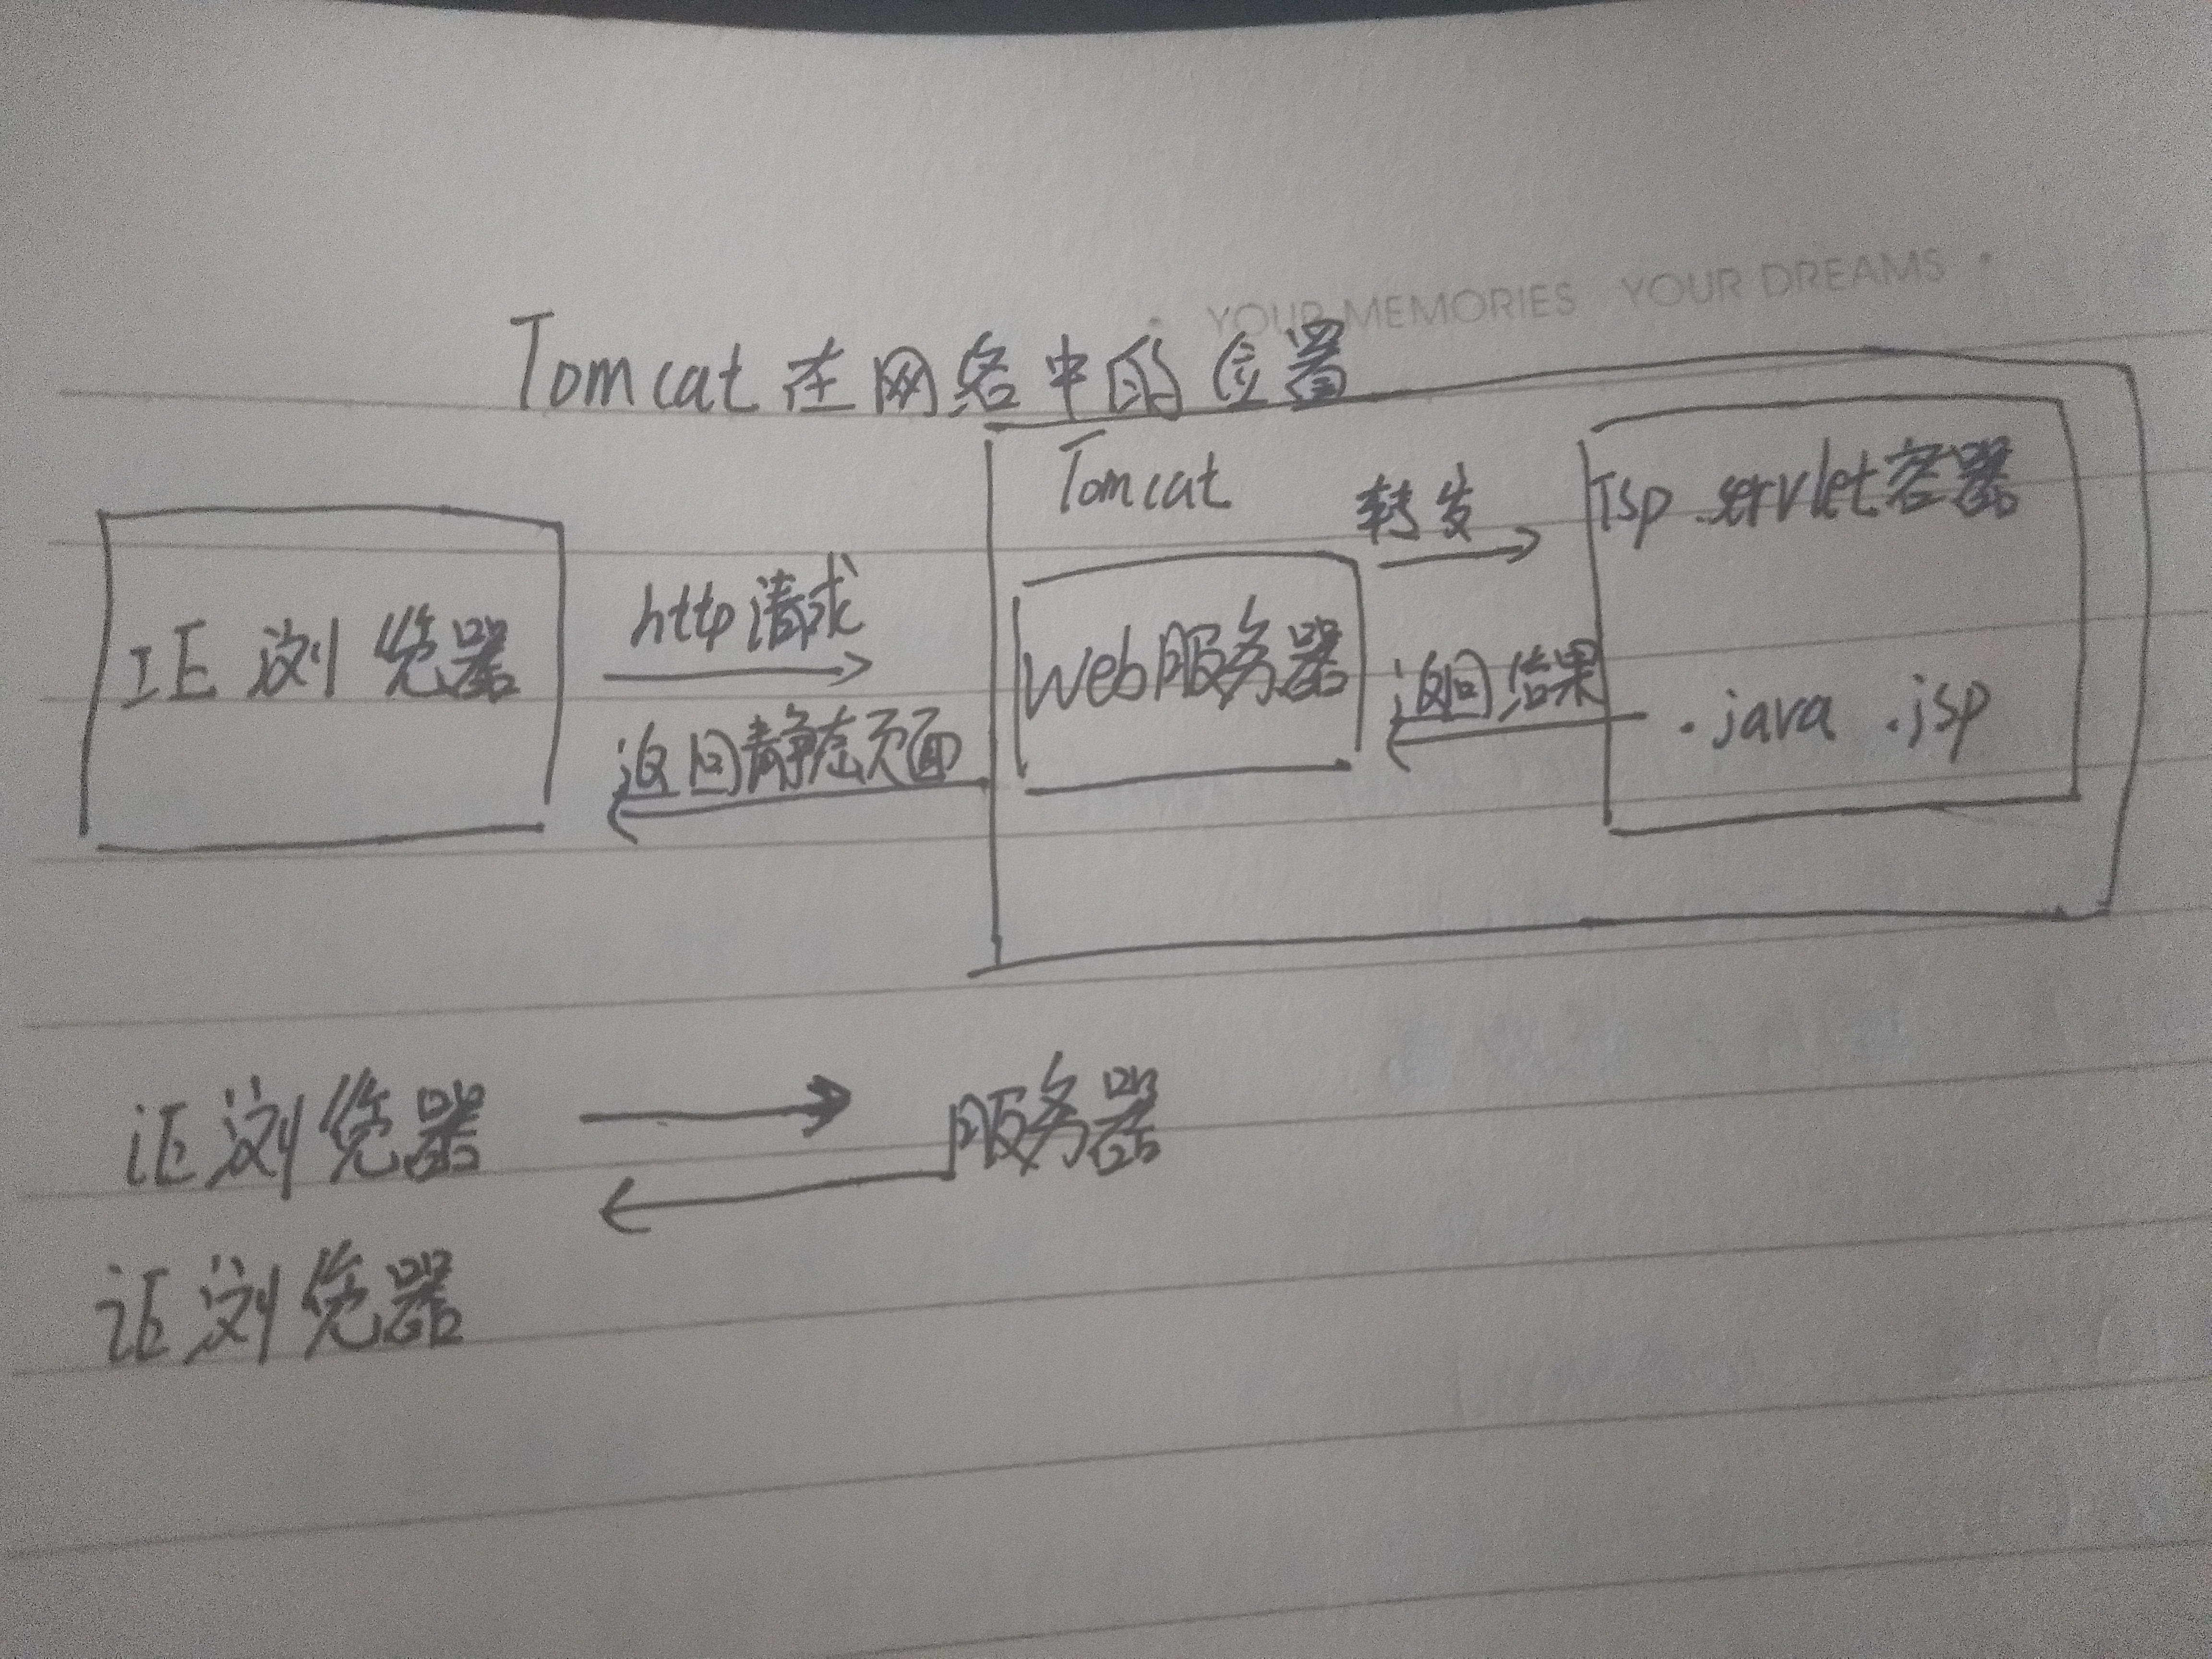 YOUR MEMORIES YOUR DREAMS
Tomcat在网络中的位置
Tomcat
转发
Jsp servlet容器
IE浏览器
http请求
Web服务器
返回静态页面
返回结果
.java .jsp
iE浏览器
服务器
iE浏览器